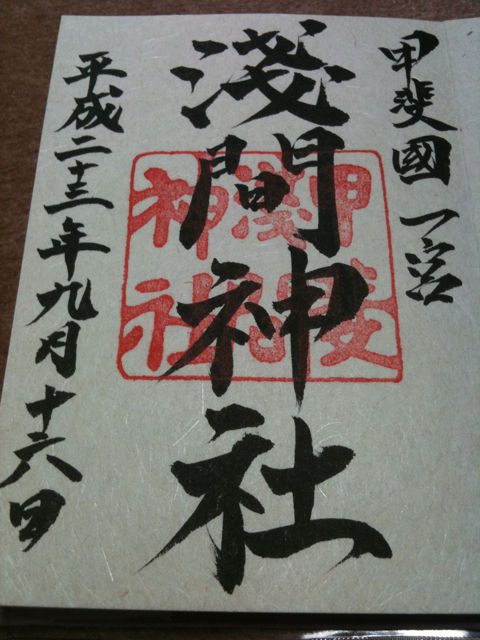 甲斐國一宮
淺間神社
甲斐
淺間
神社
平成二十三年九月十六日